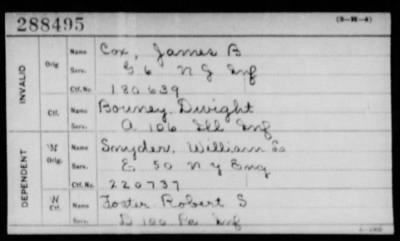 288495
(3-M-4)
INVALID
Orig. Name Cox, James B
Serv. G 6 N J Inf
Ctf. No. 180639
Ctf. Name Bouney Dwight
Serv. A 106 Ill Inf
DEPENDENT
W Orig. Name Snyder, William
Serv. E 50 N Y Eng
Ctf. No. 220737
W Ctf. Name Foster Robert S
Serv. D 100 Pa Inf